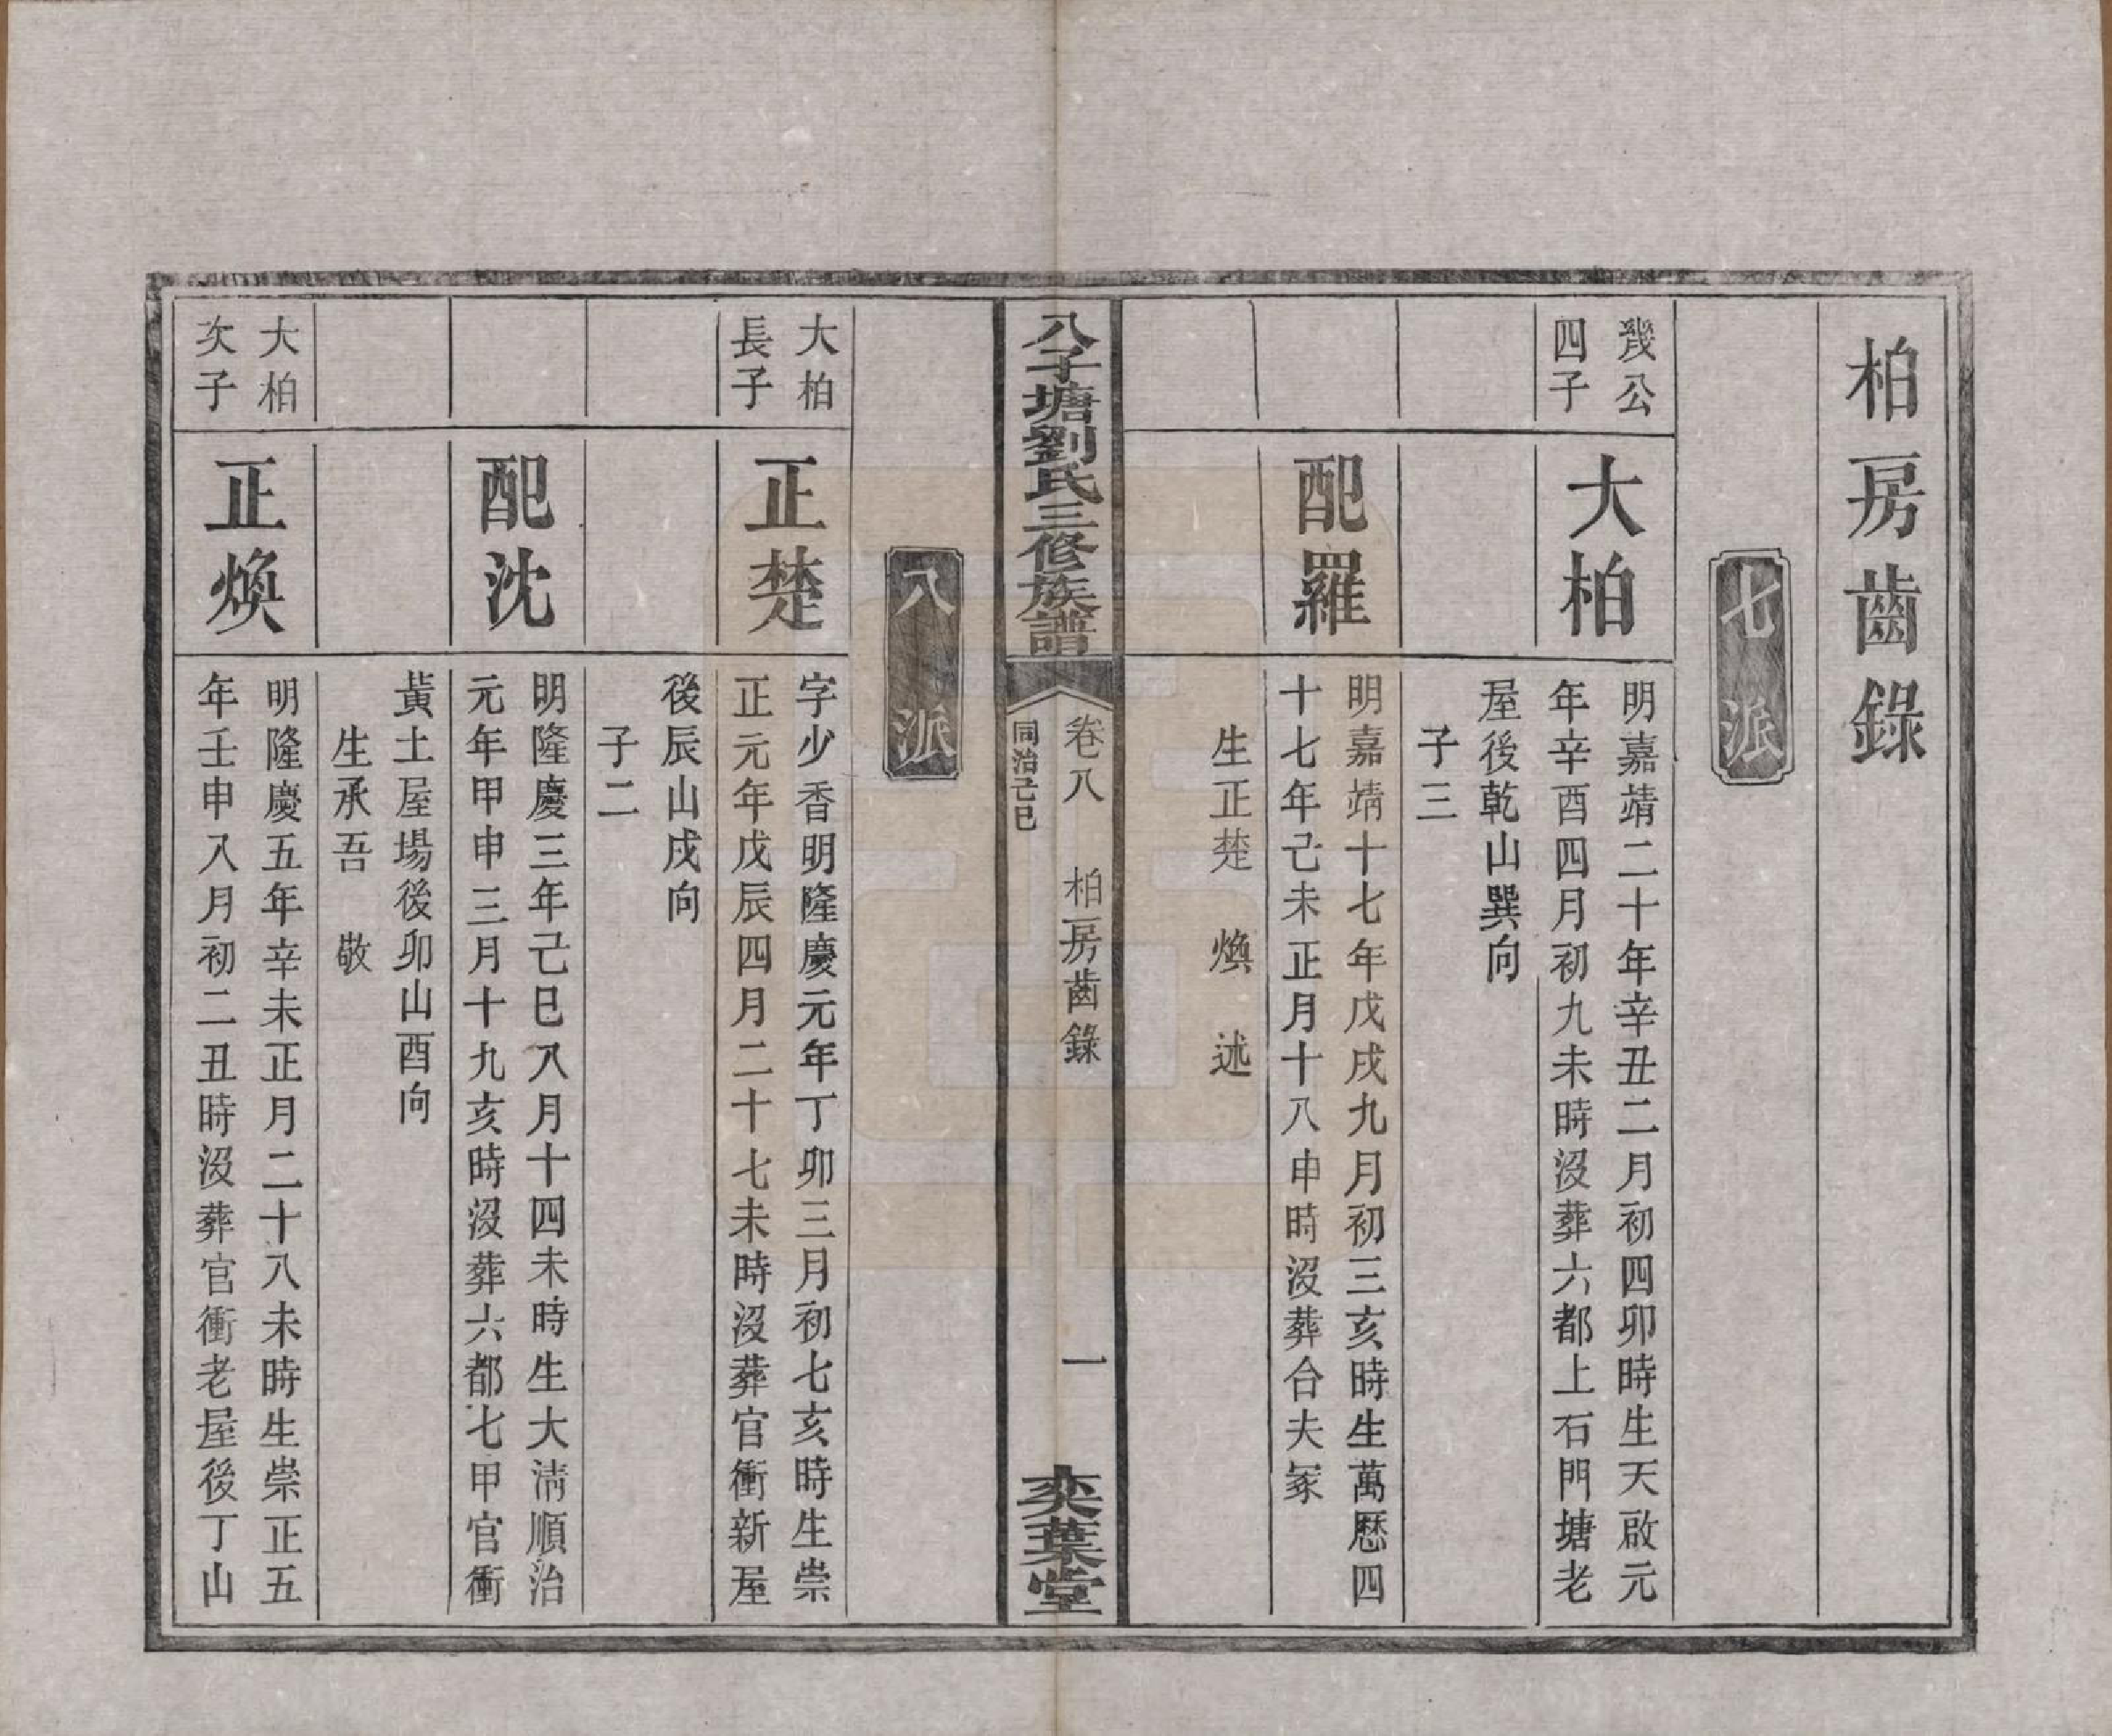 柏房齒錄
七派
幾公
四子
大柏
明嘉靖二十年辛丑二月初四卯時生天啟元
年辛酉四月初九未時沒葬六都上石門塘老
屋後乾山巽向
子三
配羅
明嘉靖十七年戊戌九月初三亥時生萬曆四
十七年己未正月十八申時沒葬合夫冢
生正楚 煥 述
八子塘劉氏三修族譜
卷八 柏房齒錄
一
同治己巳
奕葉堂
八派
大柏
長子
正楚
字少香明隆慶元年丁卯三月初七亥時生崇
正元年戊辰四月二十七未時沒葬官衝新屋
後辰山戌向
子二
配沈
明隆慶三年己巳八月十四未時生大淸順治
元年甲申三月十九亥時沒葬六都七甲官衝
黃土屋場後卯山酉向
生承吾 敬
大柏
次子
正煥
明隆慶五年辛未正月二十八未時生崇正五
年壬申八月初二丑時沒葬官衝老屋後丁山